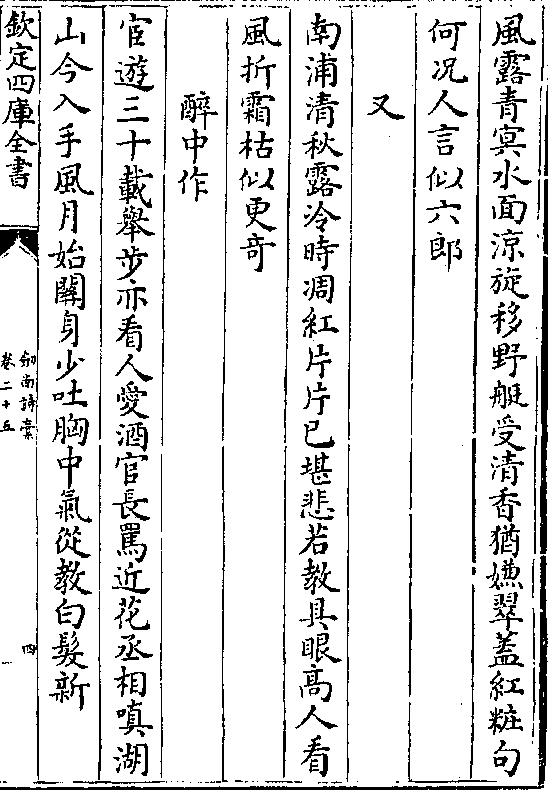 風露青寞水面涼旋移野艇受清香猶嫌翠蓋紅粧句
何况人言似六郎
又
南浦清秋露冷時凋紅片片已堪悲若教具眼高人看
風折霜枯似更竒
醉中作
宦遊三十載舉步亦看人愛酒官長罵近花丞相嗔湖
山今入手風月始關身少吐胸中氣從教白髮新
欽定四庫全書
劒南詩稾
卷二十五
四